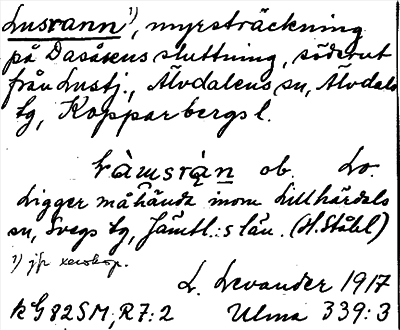 Lusrann¹), myrsträckning
på Dasåsens sluttning, söderut
från Lustj., Älvdalens sn, Älvdals
tg, Kopparbergs l.
ob. Lo.
Ligger måhända inom Lillhärdals
sn, Svegs tg, Jämtl:s län. (H. Ståhl)
¹) jfr xerokop.
L. Levander 1917
kG82SM; R7:2 Ulma 339:3